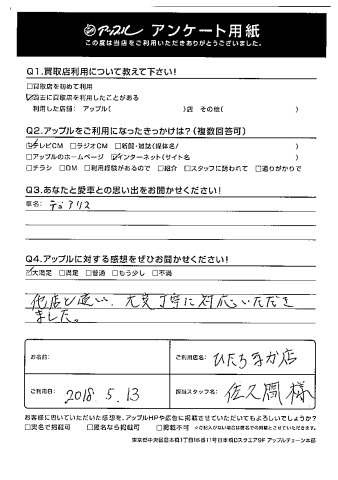 アップル アンケート用紙
この度は当店をご利用いただきありがとうございました。
Q1.買取店利用について教えて下さい!
□買取店を初めて利用
☑過去に買取店を利用したことがある
利用した店舗: アップル( )店 その他( )
Q2.アップルをご利用になったきっかけは?(複数回答可)
☑テレビCM □ラジオCM □新聞・雑誌(媒体名/ )
□アップルのホームページ ☑インターネット(サイト名 )
□チラシ □DM □利用経験があるので □紹介 □スタッフに誘われて □通りがかりで
Q3.あなたと愛車との思い出をお聞かせください!
車名: デュアリス
Q4.アップルに対する感想をぜひお聞かせください!
☑大満足 □満足 □普通 □もう少し □不満
他店と違い、大変丁寧に対応いただき
ました。
お名前:
ご利用店名: ひたちなか店
ご利用日: 2018 5.13
担当スタッフ名: 佐久間 様
お客様に書いていただいた感想を、アップルHPや広告に掲載させていただいてもよろしいでしょうか?
□実名で掲載可 □匿名なら掲載可 □掲載不可 ※ご記入がない場合は匿名での掲載とさせていただきます。
東京都中央区日本橋1丁目16番11号日本橋Dスクエア9F アップルチェーン本部